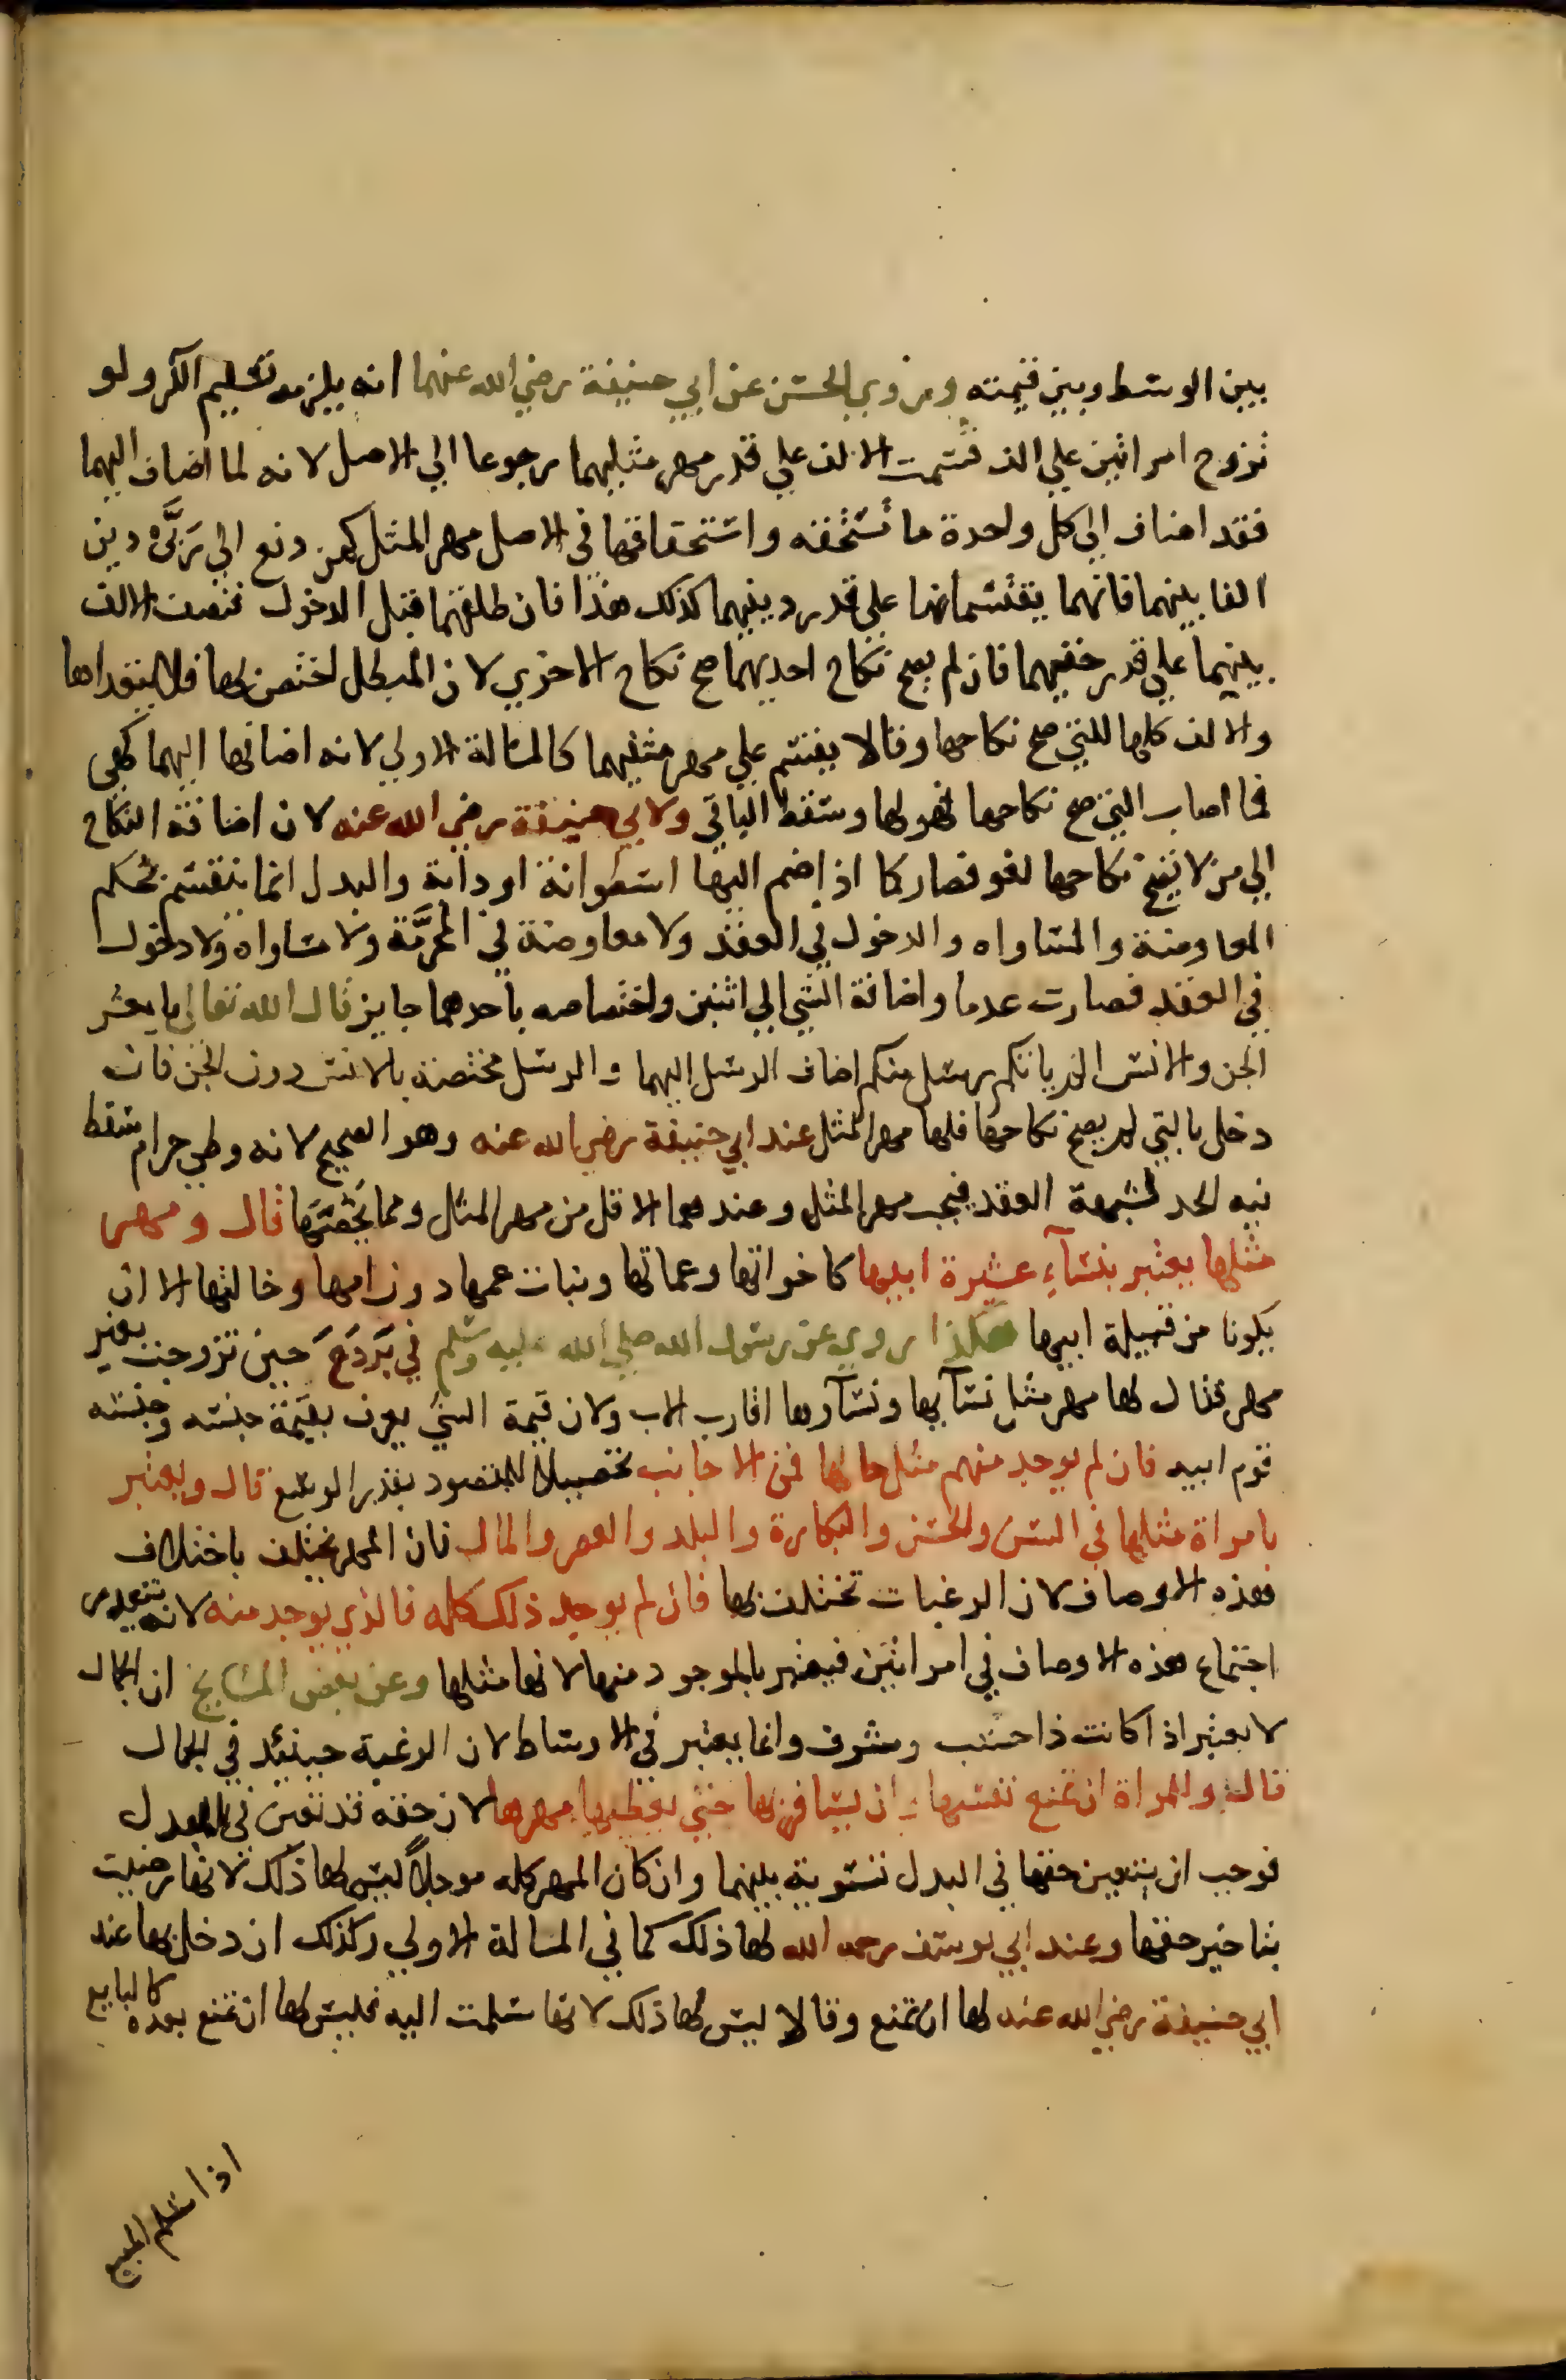 بين الوسط وبين قيمته وروي الحسن عن ابي حنيفة رضي الله عنهما انه يلزمه تسليم الكر ولو
تزوج امراتين علي الف قسمت الالف علي قدر مهر مثليهما رجوعا الي الاصل لانه لما اضاف اليهما
فقد اضاف الي كل واحدة ما تستحقه واستحقاقها في الاصل مهر المثل كمن دفع الي ربَّي دين
الفا بينهما فانهما يقتسمانها علي قدر دينيهما كذلك هذا فان طلقهما قبل الدخول فنصف الالف
بينهما علي قدر حقيهما فان لم يصح نكاح احديهما صح نكاح الاخري لان المبطل اختص بها فلا يتعداها
والالف كلها للتي صح نكاحها وقالا يقسم علي مهر مثليهما كالمسالة الاولي لانه اضافها اليهما كهي
فما اصاب التي صح نكاحها فهو لها وسقط الباقي ولابي حنيفة رضي الله عنه لان اضافة النكاح
الي من لا يصح نكاحها لغو فصار كما اذا ضم اليها اسطوانة او دابة والبدل انما ينقسم بحكم
المعاوضة والمساواه والدخول في العقد ولا معاوضة في المحرَّمة ولا مساواه ولا دخول
في العقد فصارت عدما واضافة الشي الي اثنين واختصاصه باحدهما جايز قال الله تعالي يا معشر
الجن والانس الم ياتكم رسل منكم اضاف الرسل اليهما والرسل مختصة بالانس دون الجن فان
دخل بالتي لم يصح نكاحها فلها مهر المثل عند ابي حنيفة رضي الله عنه وهو الصحيح لانه وطي حرام سقط
فيه الحد لشبهة العقد فيجب مهر المثل وعندهما الاقل من مهر المثل ومما يخصها قال ومهر
مثلها يعتبر بنسآء عشيرة ابيها كاخواتها وعماتها وبنات عمها دون امها وخالتها الا ان
يكونا من قبيلة ابيها هكذا روي عن رسول الله صلي الله عليه وسلم في بَرْدَع حين تزوجت بغير
مهر فقال لها مهر مثل نسآيها ونسآوها اقارب الاب ولان قيمة الشي يعرف بقيمة جنسه وجنسه
قوم ابيه فان لم يوجد منهم مثل حالها فمن الاجانب تحصيلا للمقصود بقدر الوسع قال ويعتبر
بامراة مثلها في السن والحسن والبكارة والبلد والعصر والمال فان المهر يختلف باختلاف
هذه الاوصاف لان الرغبات تختلف بها فان لم يوجد ذلك كله فالذي يوجد منه لانه يتعذر
اجتماع هذه الاوصاف في امراتين فيعتبر بالموجود منها لانها مثلها وعن بعض المشايخ ان الجمال
لا يعتبر اذا كانت ذا حسب وشرف وانما يعتبر في الاوساط لان الرغبة حينئد في الجمال
قال وللمراة ان تمنع نفسها وان يسافر بها حتي يعطيها مهرها لان حقه قد تعين في المبدل
فوجب ان يتعين حقها في البدل تسوية بينهما وان كان المهر كله موجلاً ليس لها ذلك لانها رضيت
بتاخير حقها وعند ابي يوسف رحمه الله لها ذلك كما في المسالة الاولي وكذلك ان دخل بها عند
ابي حنيفة رضي الله عنه لها ان تمنع وقالا ليس لها ذلك لانها سلمت اليه فليس لها ان تمنع بعده كالبايع
اذا سلم المبيع